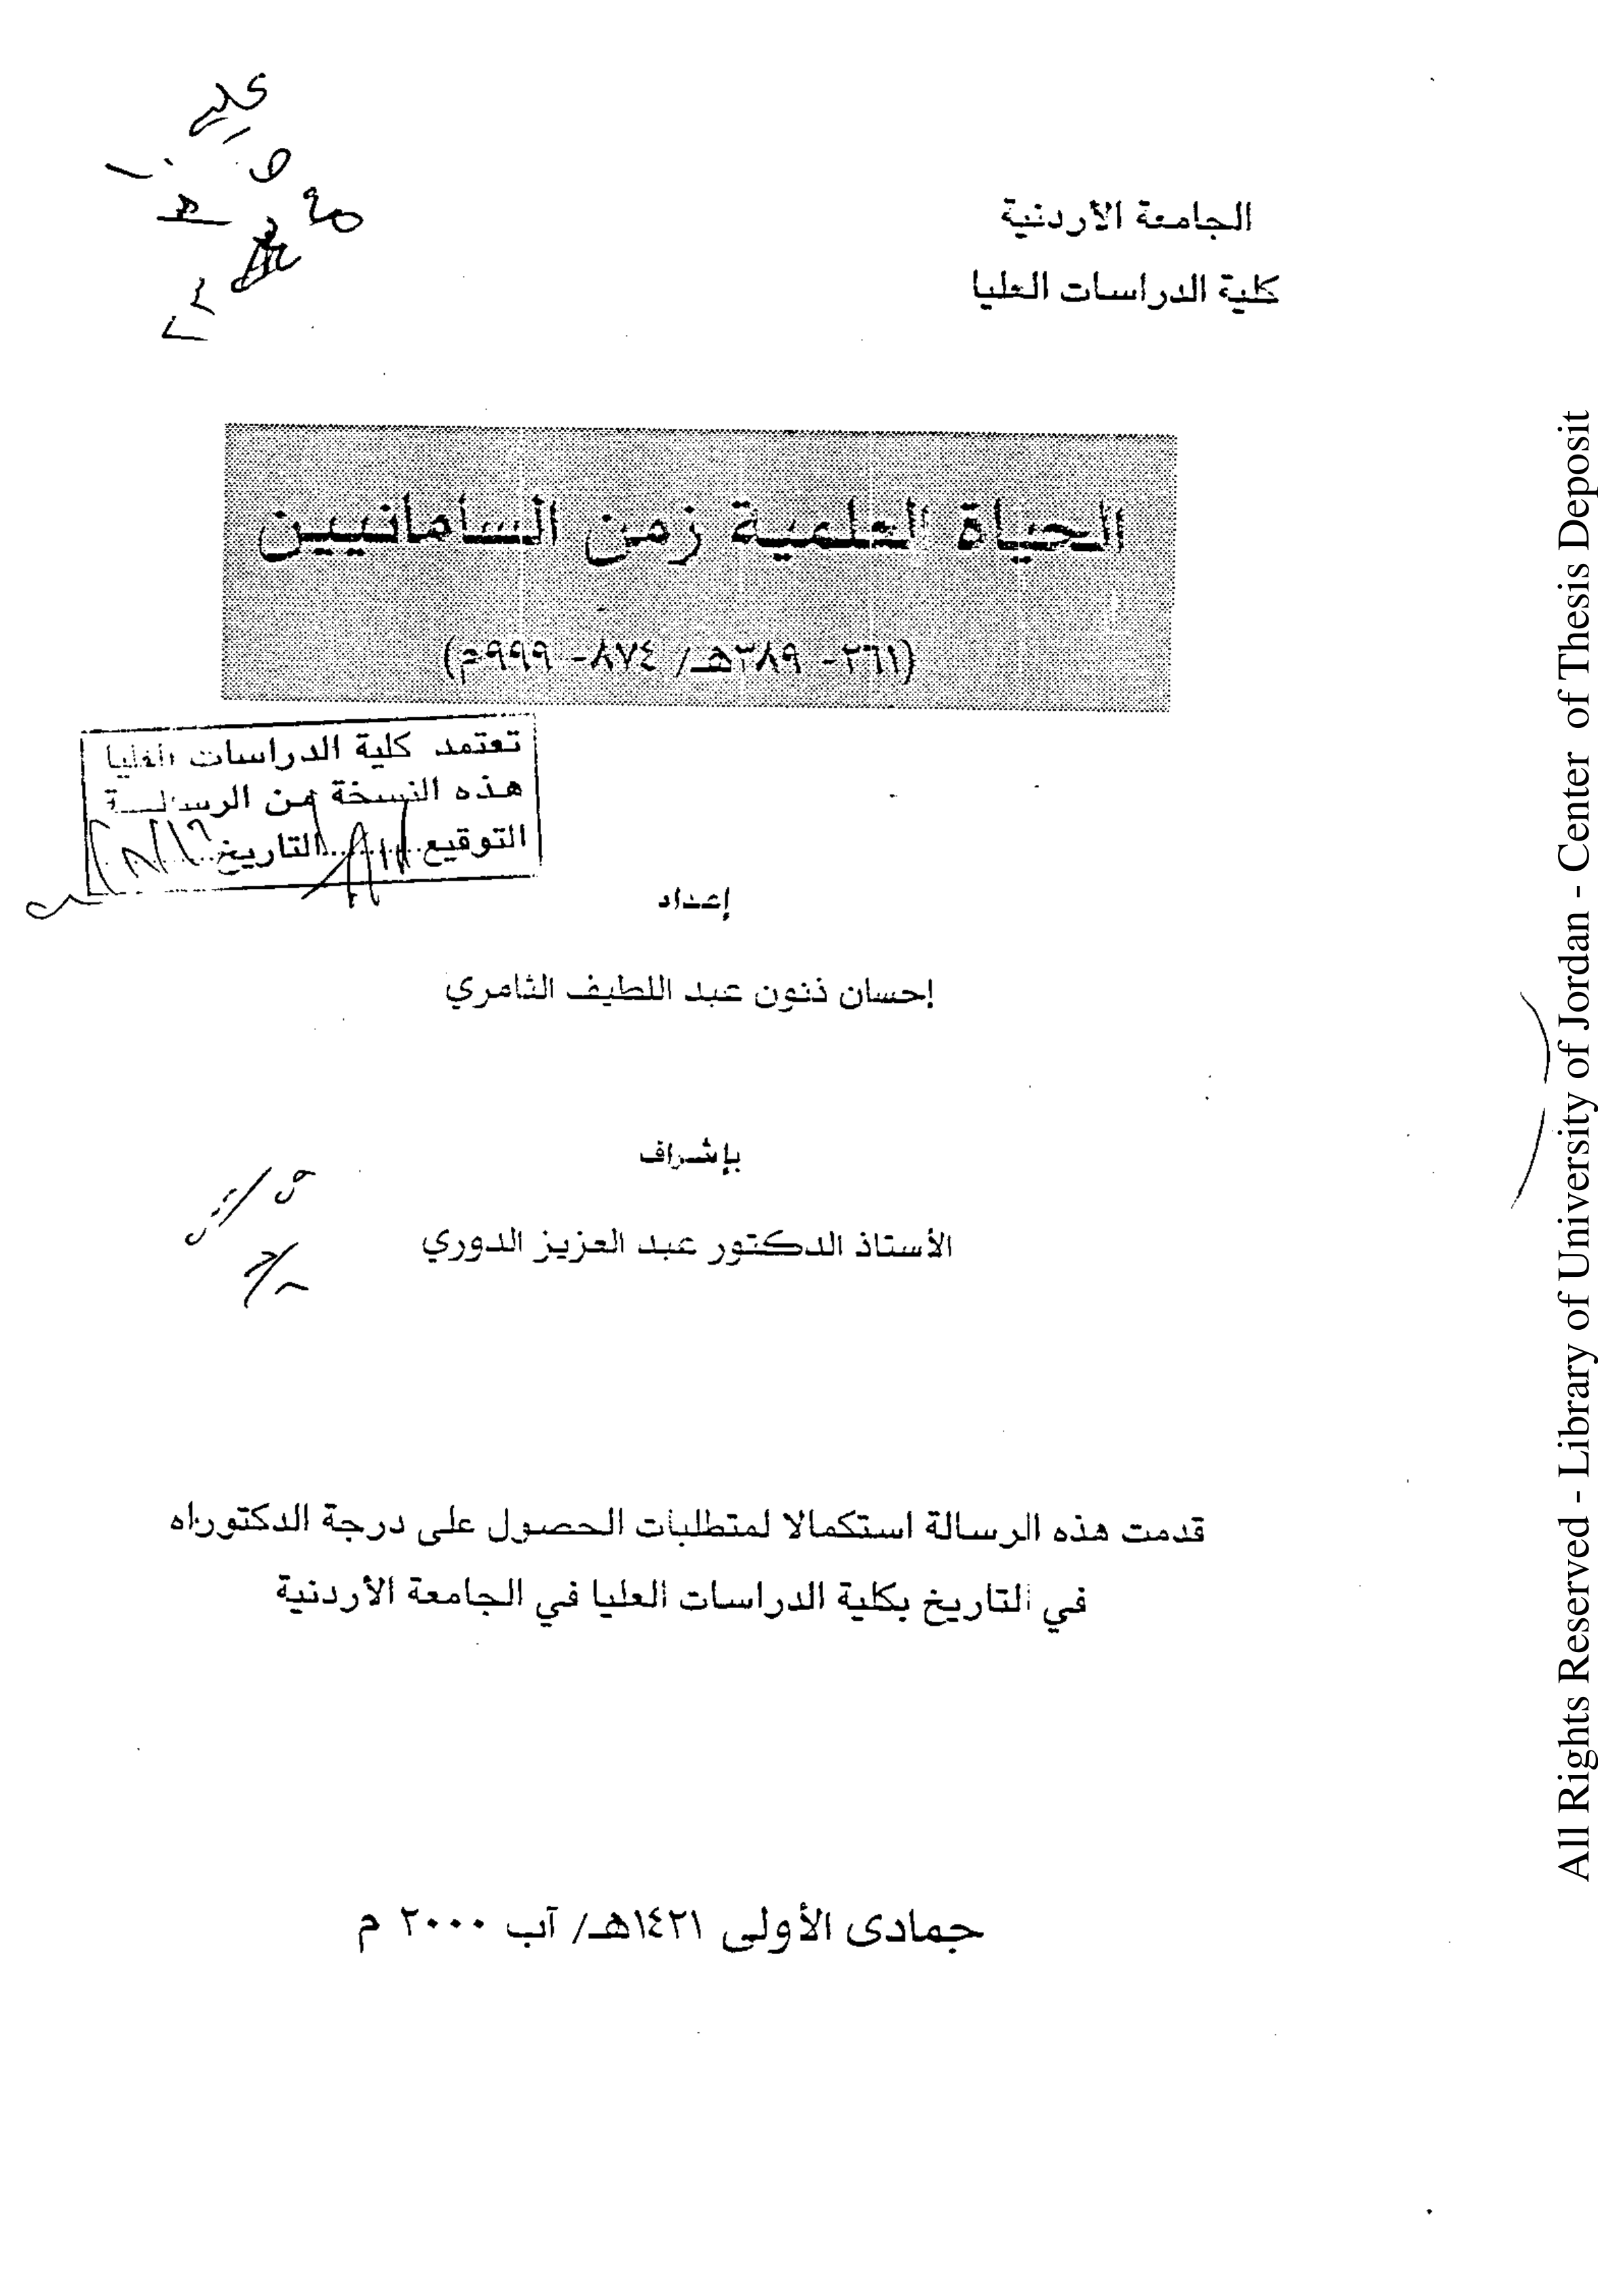 الجامعة الأردنية
كلية الدراسات العليا
الحياة العلمية زمن السامانيين
(٢٦١- ٣٨٩هـ/ ٨٧٤- ٩٩٩م)
تعتمد كلية الدراسات العليا
هذه النسخة من الرسالـــة
التوقيع.........التاريخ.........
إعداد
إحسان ذنون عبد اللطيف الثامري
بإشراف
الأستاذ الدكتور عبد العزيز الدوري
قدمت هذه الرسالة استكمالا لمتطلبات الحصول على درجة الدكتوراه
في التاريخ بكلية الدراسات العليا في الجامعة الأردنية
جمادى الأولى ١٤٢١هـ/ آب ٢٠٠٠ م
All Rights Reserved - Library of University of Jordan - Center of Thesis Deposit